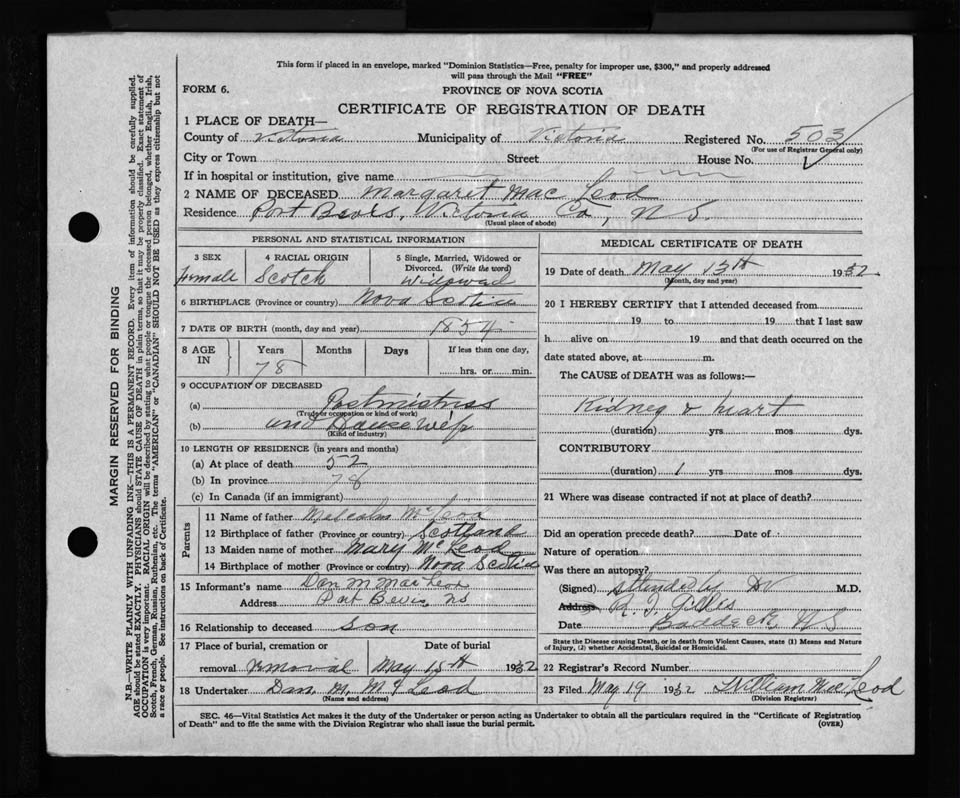 This form if placed in an envelope, marked "Dominion Statistics—Free, penalty for improper use, $300," and properly addressed
will pass through the Mail "FREE"
FORM 6.
PROVINCE OF NOVA SCOTIA
CERTIFICATE OF REGISTRATION OF DEATH
1 PLACE OF DEATH—
County of Victoria Municipality of Victoria Registered No. 503
(For use of Registrar General only)
City or Town Street House No.
If in hospital or institution, give name
2 NAME OF DECEASED Margaret Mac Leod
Residence Port Bevis, Victoria Co, N S.
(Usual place of abode)
PERSONAL AND STATISTICAL INFORMATION
3 SEX 4 RACIAL ORIGIN 5 Single, Married, Widowed or
Divorced. (Write the word)
Female Scotch Widowed
6 BIRTHPLACE (Province or country) Nova Scotia
7 DATE OF BIRTH (month, day and year) 1854
8 AGE IN Years Months Days If less than one day,
78 hrs. or min.
9 OCCUPATION OF DECEASED
(a) Postmistress
(Trade or occupation or kind of work)
(b) and Housewife
(Kind of industry)
10 LENGTH OF RESIDENCE (in years and months)
(a) At place of death 52
(b) In province 78
(c) In Canada (if an immigrant)
Parents
11 Name of father Malcolm McLeod
12 Birthplace of father (Province or country) Scotland
13 Maiden name of mother Mary McLeod
14 Birthplace of mother (Province or country) Nova Scotia
15 Informant's name Dan M MacLeod
Address Port Bevis NS
16 Relationship to deceased son
17 Place of burial, cremation or Date of burial
removal removal May 15th 1932
18 Undertaker Dan. M. McLeod
(Name and address)
MEDICAL CERTIFICATE OF DEATH
19 Date of death May 13th 1932
(Month, day and year)
20 I HEREBY CERTIFY that I attended deceased from
19 to 19 that I last saw
h alive on 19 and that death occurred on the
date stated above, at m.
The CAUSE of DEATH was as follows:—
Kidney & heart
(duration) yrs mos dys.
CONTRIBUTORY
(duration) 1 yrs mos dys.
21 Where was disease contracted if not at place of death?
Did an operation precede death? Date of
Nature of operation
Was there an autopsy?
(Signed) Attended by Dr M.D.
Address K. J. Gillis
Date Baddeck N S
State the Disease causing Death, or in death from Violent Causes, state (1) Means and Nature
of Injury, (2) whether Accidental, Suicidal or Homicidal.
22 Registrar's Record Number
23 Filed May 19 1932 William MacLeod
(Division Registrar)
SEC. 46—Vital Statistics Act makes it the duty of the Undertaker or person acting as Undertaker to obtain all the particulars required in the "Certificate of Registration
of Death" and to file the same with the Division Registrar who shall issue the burial permit.
(OVER)
MARGIN RESERVED FOR BINDING
N.B.—WRITE PLAINLY WITH UNFADING INK—THIS IS A PERMANENT RECORD. Every item of information should be carefully supplied.
AGE should be stated EXACTLY. PHYSICIANS should STATE CAUSE OF DEATH in plain terms, so that it may be properly classified. Exact statement of
OCCUPATION is very important. RACIAL ORIGIN will be described by stating to what people or tongue the deceased person belonged, whether English, Irish,
Scotch, French, German, Russian, Ruthenian, etc. The terms "AMERICAN" or "CANADIAN" SHOULD NOT BE USED as they express citizenship but not
a race or people. See instructions on back of Certificate.